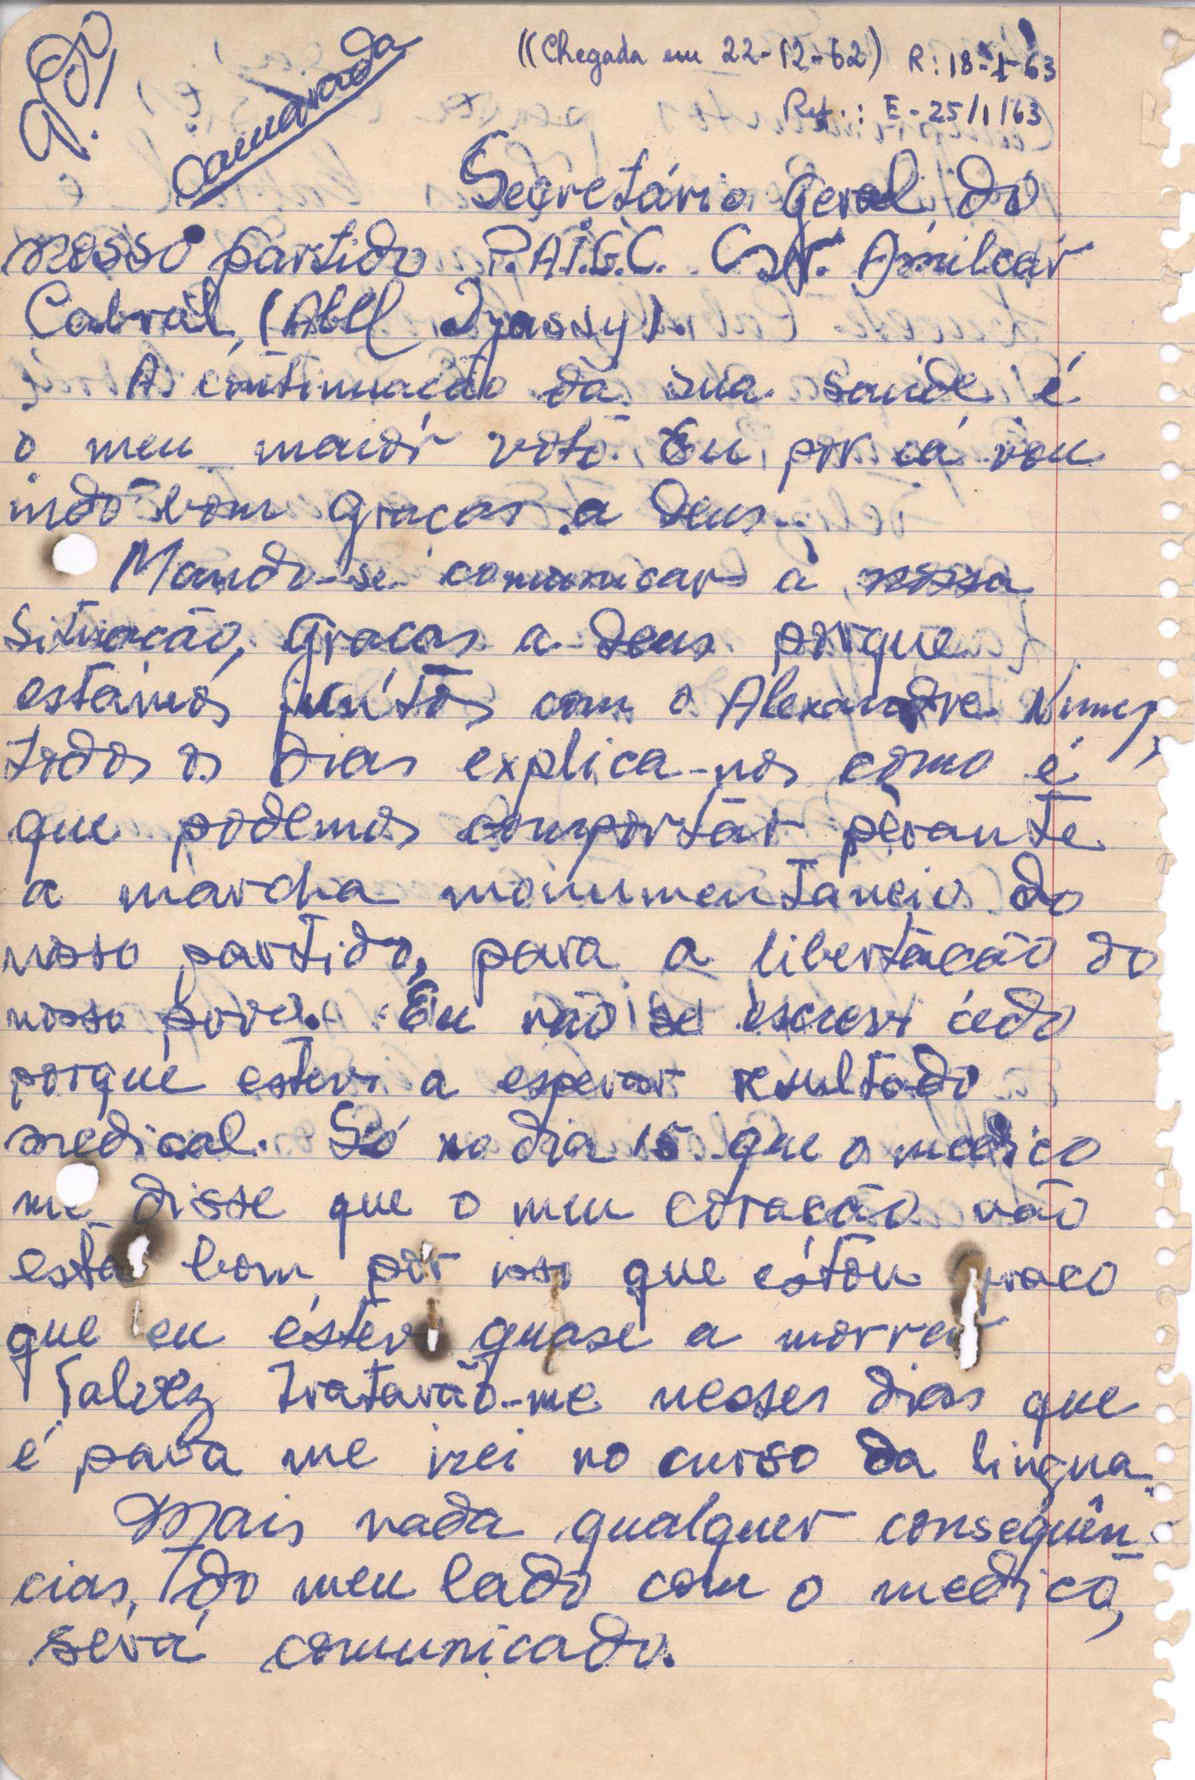 ((Chegada em 22-12-62) R: 18-1-63
Ref.: E-25/1/63
camarada
Secretário geral do
nosso partido P.A.I.G.C. Amílcar
Cabral, (Abel Djassy).
A continuacão da sua saúde é
o meu maiór voto. Eu, por cá vou
indo bom graças a Deus.
Mando-se comunicar a nossa
situacão, gracas a Deus porque
estámos júntos com o Alexandre Nunez,
todos os dias explica-nos como é
que podemos comportár pérante
a marcha monumentaneio do
nosso partido, para a libertacão do
nosso povo. Eu não se escrevi cedo
porque estevi a esperar resultado
medical. Só no dia 15 que o medico
me disse que o meu coracão não
está bom, por isso que estou fraco
que eu éstevi quase a morrer
Talvez tratarão-me nesses dias que
é para me irei no curso da lingua.
Mais nada qualquer consequên-
cias, do meu lado com o medico,
será comunicado.